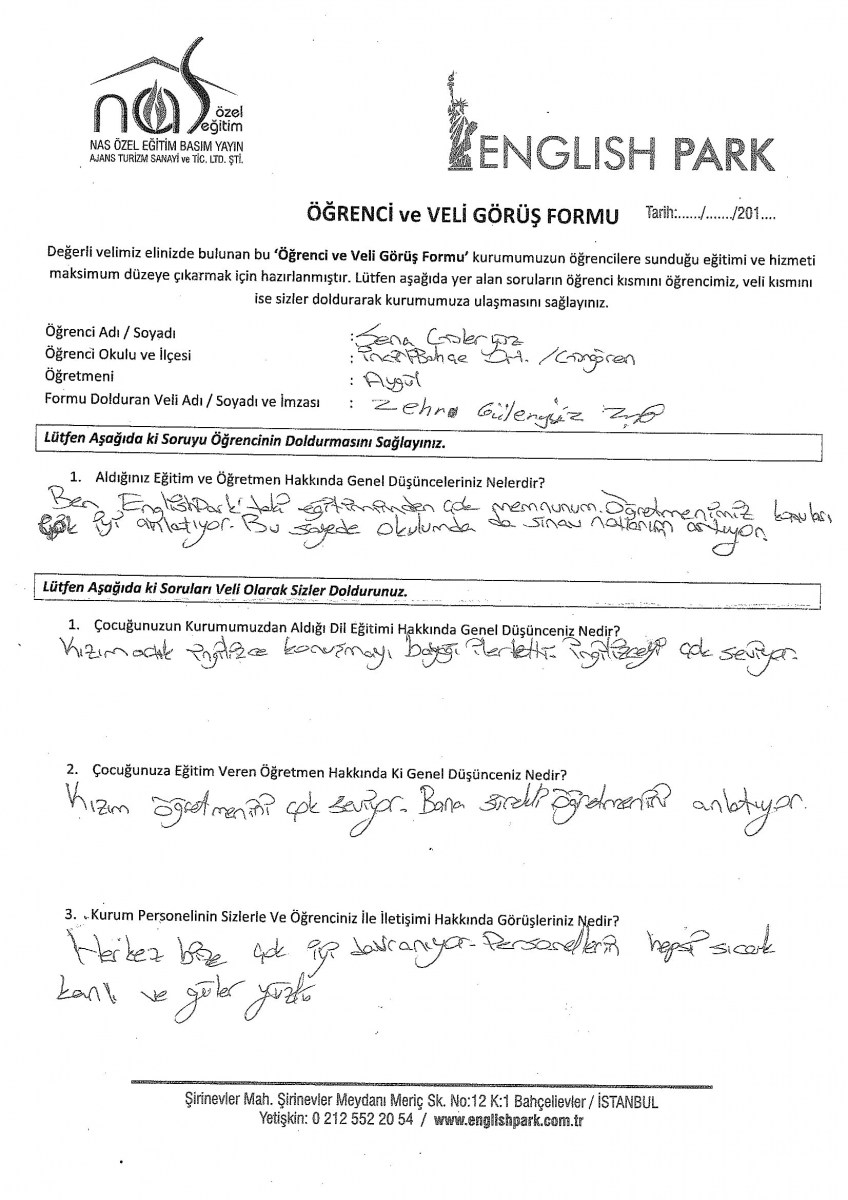 nas özel eğitim
NAS ÖZEL EĞİTİM BASIM YAYIN
AJANS TURİZM SANAYİ ve TİC. LTD. ŞTİ.
ENGLISH PARK
ÖĞRENCİ ve VELİ GÖRÜŞ FORMU Tarih:....../......./201....
Değerli velimiz elinizde bulunan bu ‘Öğrenci ve Veli Görüş Formu’ kurumumuzun öğrencilere sunduğu eğitimi ve hizmeti
maksimum düzeye çıkarmak için hazırlanmıştır. Lütfen aşağıda yer alan soruların öğrenci kısmını öğrencimiz, veli kısmını
ise sizler doldurarak kurumumuza ulaşmasını sağlayınız.
Öğrenci Adı / Soyadı : Sena
Öğrenci Okulu ve İlçesi : Bahçe /Güngören
Öğretmeni : Aygül
Formu Dolduran Veli Adı / Soyadı ve İmzası : Zehra Gülenyüz
Lütfen Aşağıda ki Soruyu Öğrencinin Doldurmasını Sağlayınız.
1. Aldığınız Eğitim ve Öğretmen Hakkında Genel Düşünceleriniz Nelerdir?
Ben EnglishPark'taki eğitimimden çok memnunum. Öğretmenimiz konuları
çok iyi anlatıyor. Bu sayede okulumda da sınav notlarım artıyor.
Lütfen Aşağıda ki Soruları Veli Olarak Sizler Doldurunuz.
1. Çocuğunuzun Kurumumuzdan Aldığı Dil Eğitimi Hakkında Genel Düşünceniz Nedir?
Kızım artık ingilizce konuşmayı baya̧ğı ilerletti. İngilizceyi çok seviyor.
2. Çocuğunuza Eğitim Veren Öğretmen Hakkında Ki Genel Düşünceniz Nedir?
Kızım öğretmenini çok seviyor. Bana sürekli öğretmenini anlatıyor.
3. Kurum Personelinin Sizlerle Ve Öğrenciniz İle İletişimi Hakkında Görüşleriniz Nedir?
Herkez bize çok iyi davranıyor. Personellerin hepsi sıcak
kanlı ve güler yüzlü
Şirinevler Mah. Şirinevler Meydanı Meriç Sk. No:12 K:1 Bahçelievler / İSTANBUL
Yetişkin: 0 212 552 20 54 / www.englishpark.com.tr